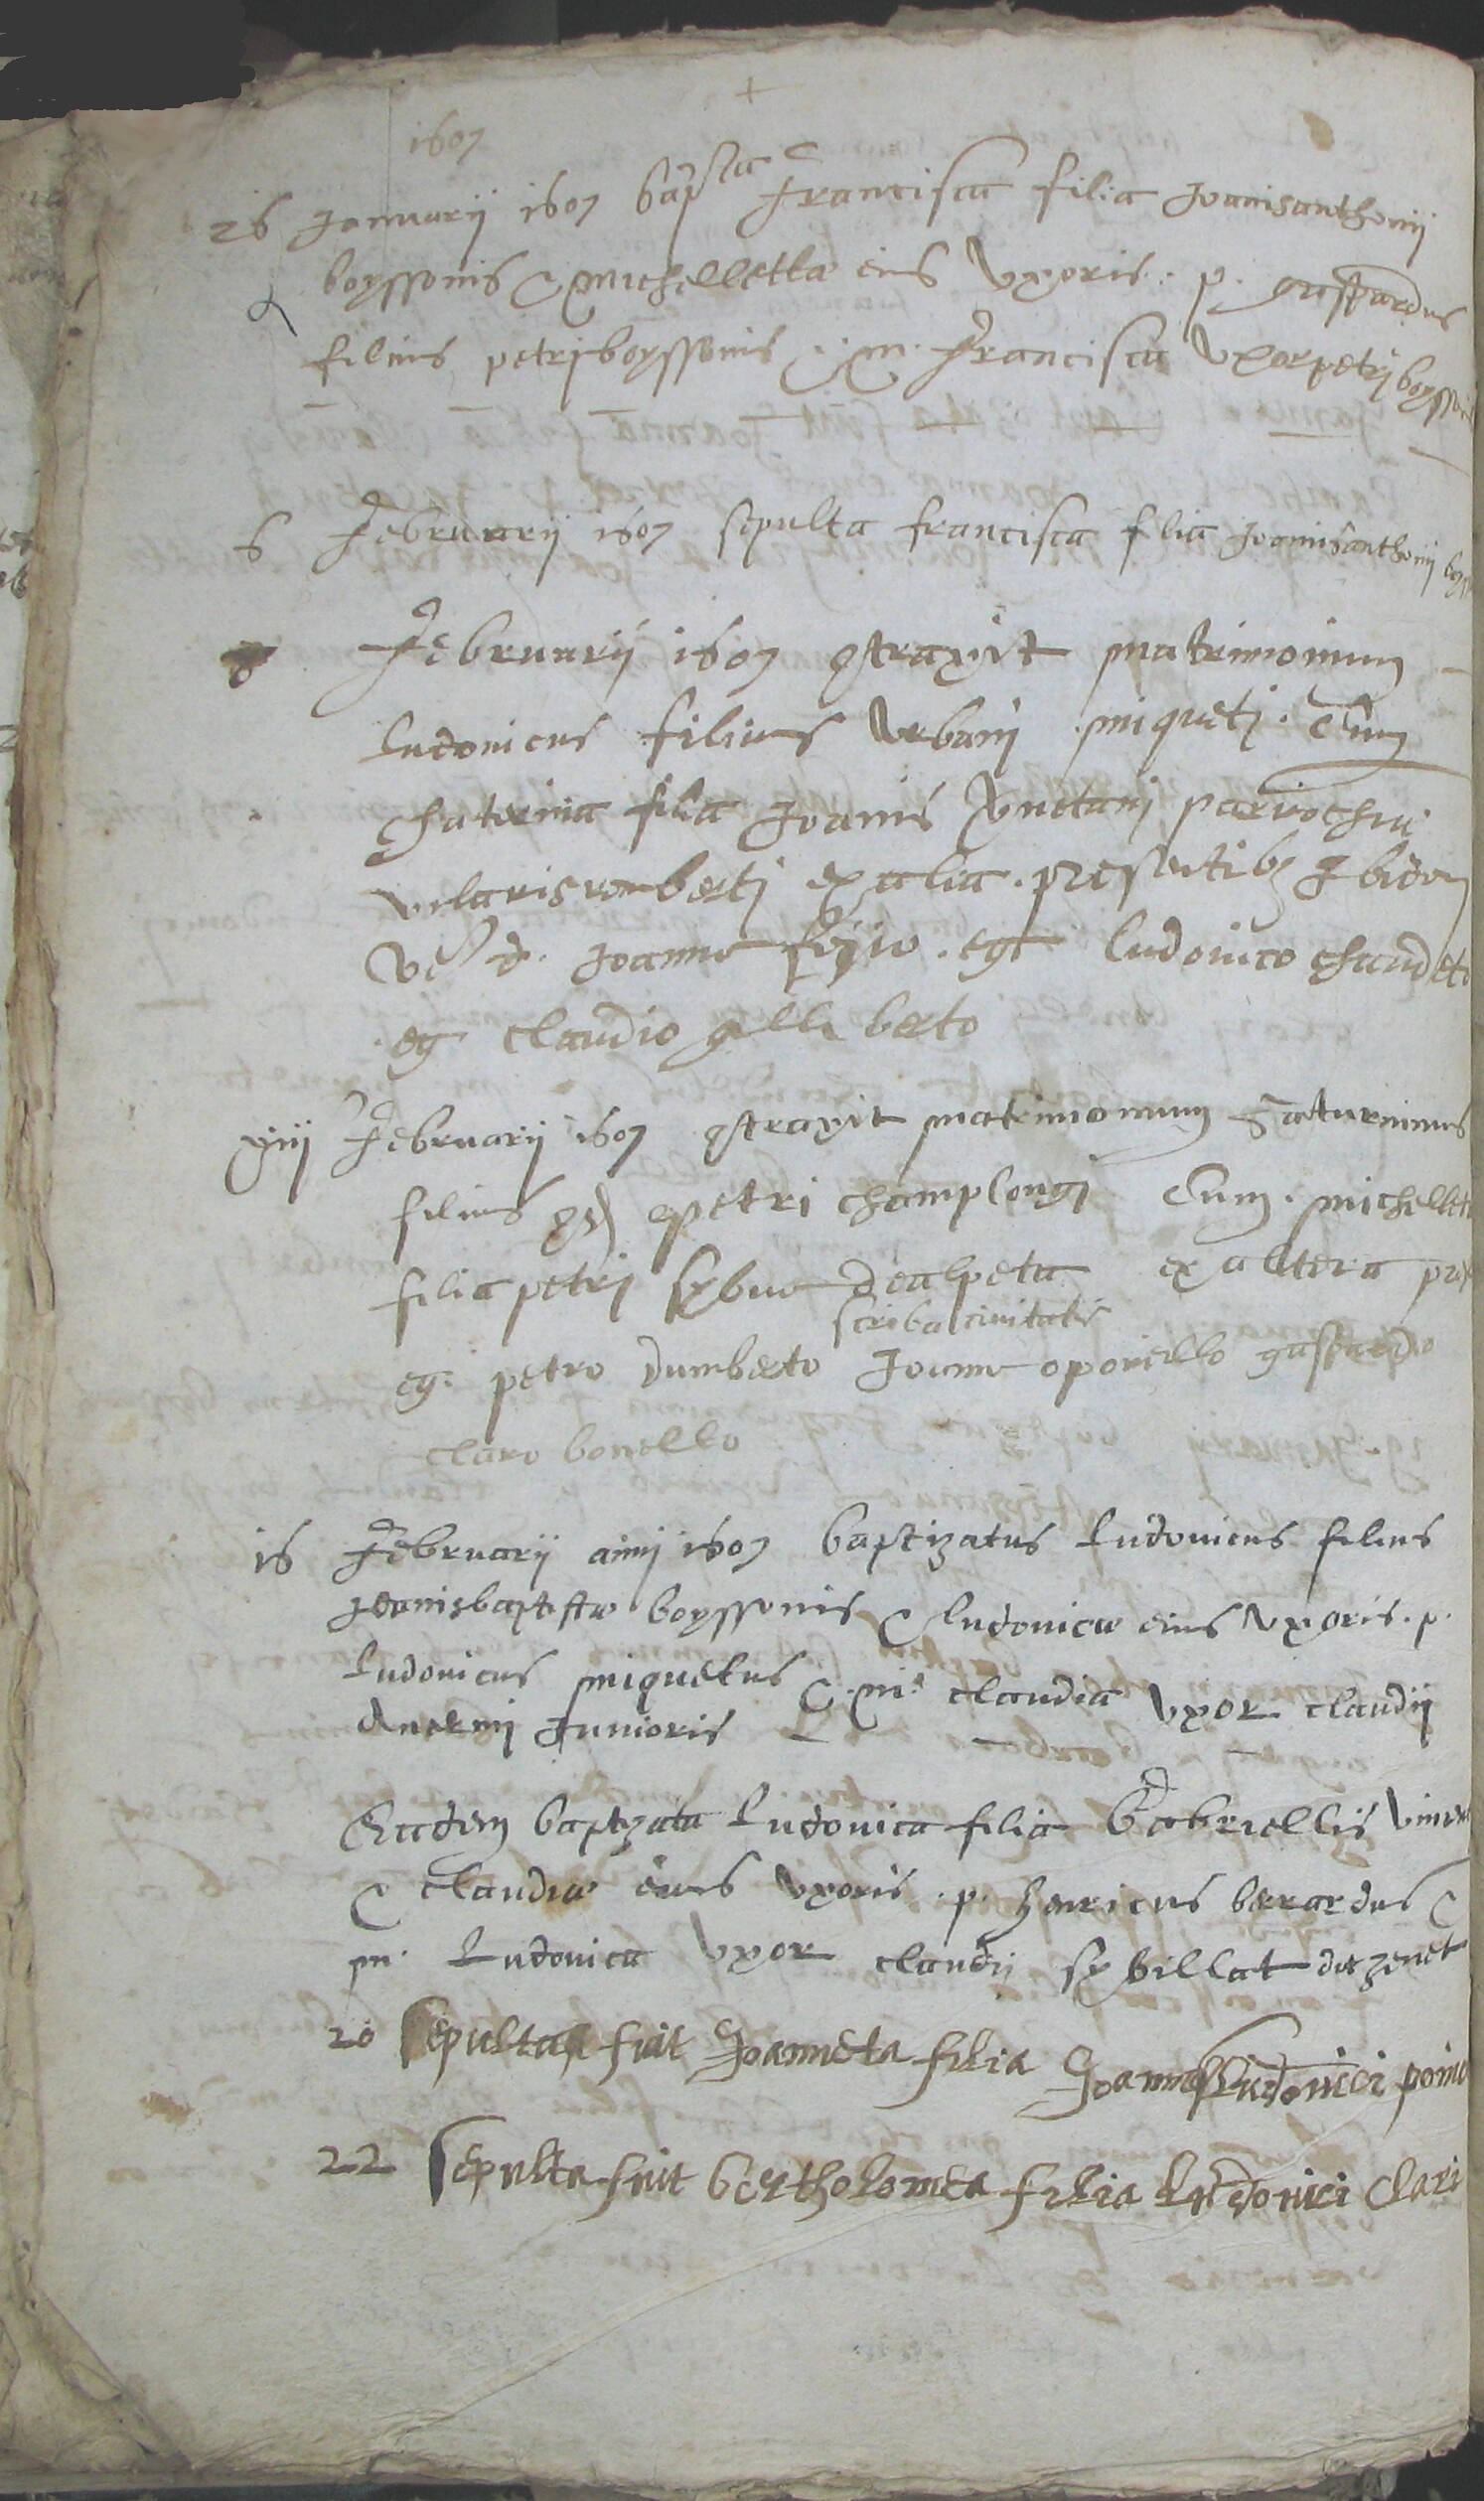 +
1607
26 Januarii 1607 bapta Francisca filia Joanisanthonii
boyssonis & michelletta eius Uxoris. p. gaspardus
filius petri boyssonis & m. Francisca Uxor petri boysson
6 Februarii 1607 sepulta francisca filia Joanisanthonii boys
8 Februarii 1607 ꝯtraxit matrimonium
Ludovicus filius Urbani miqueti. Cum
chaterina filia Joanis parrochia
vilarisromberti ex alia. presentibꝫ Ibidem
Joanne. eg Ludovico chaudeto
eg claudio galliberto
xiiij Februarii 1607 ꝯtraxit matrimonium Saturninus
filius petri champlongi Cum. michellet
filia petri sybue dealpeta ex altera pres
scriba civitatis
eg. petro dumberto Joanne oponello gaspardo
claro bonello
16 Februarii anni 1607 baptizatus Ludovicus filius
Joanisbaptiste boyssonis & Ludovice eius Uxoris. p.
Ludovicus miquetus & m. claudia Uxor claudii
Junioris
Eadem baptizata Ludovica filia Gabriellis
& claudie eius Uxoris. p. henricus berardus &
m. Ludovica Uxor claudii sybillat
20 Sepulta fuit Joanneta filia Joannes Ludovici
22 Sepulta fuit bertholomea filia Ludovici Clari